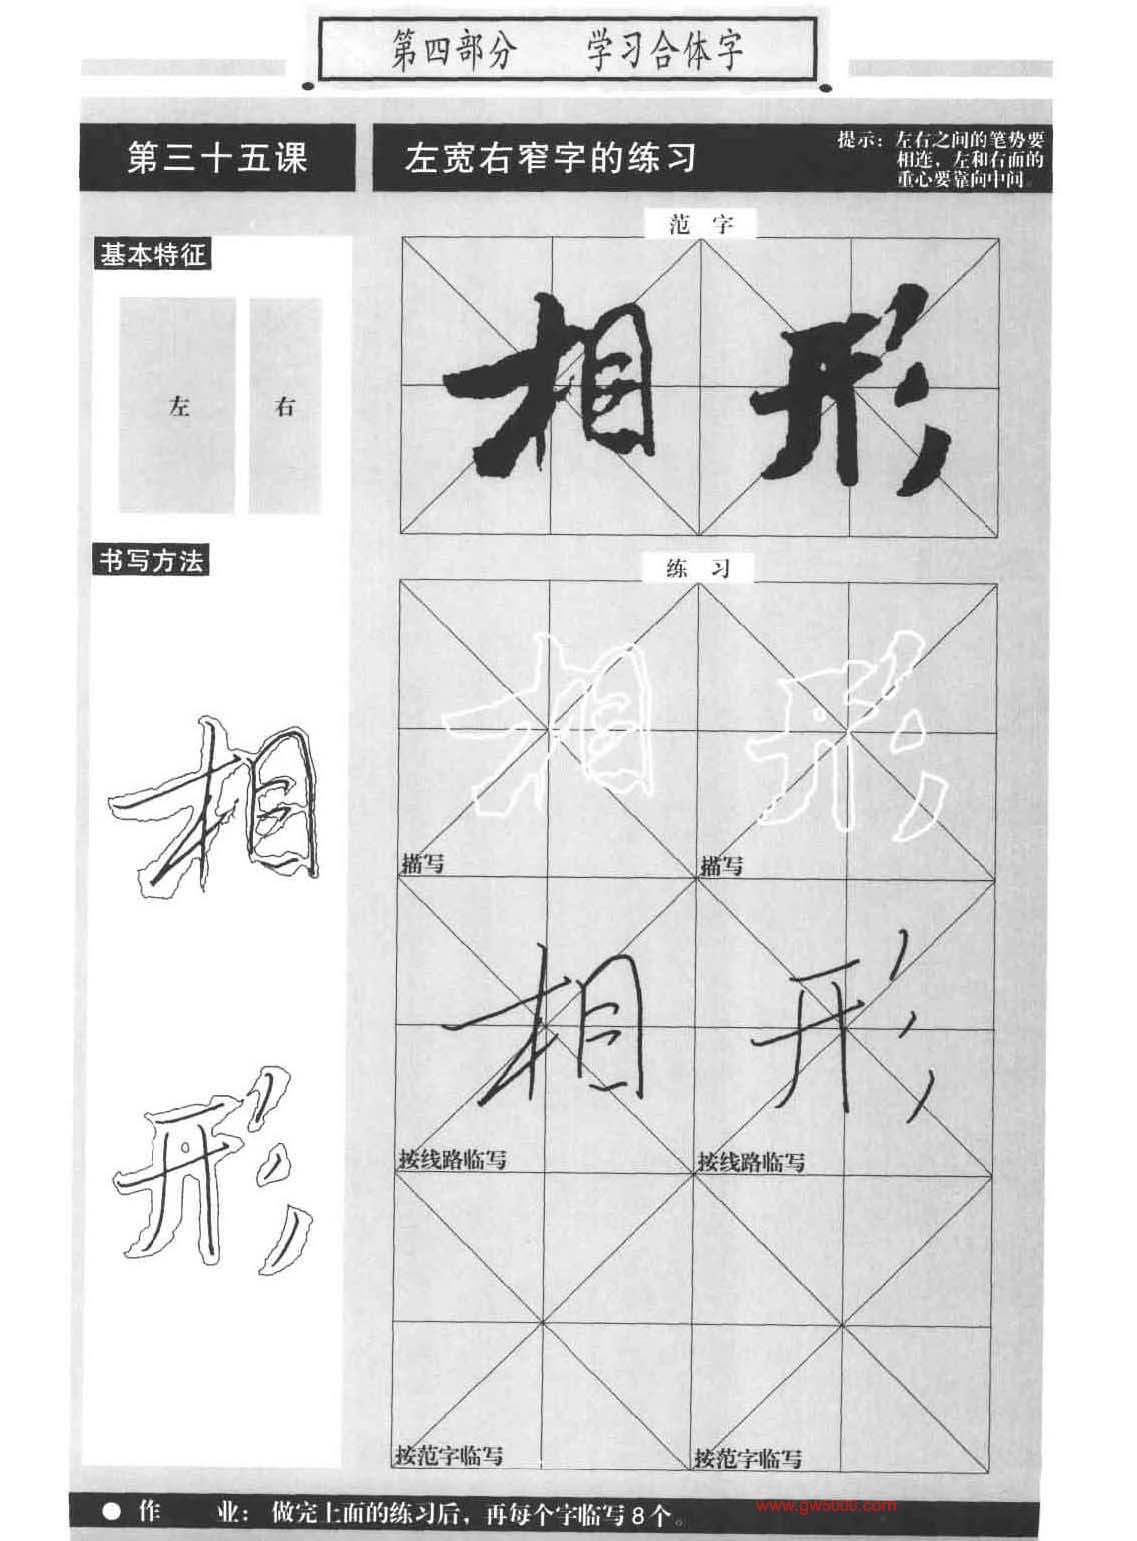 第四部分 学习合体字
第三十五课
左宽右窄字的练习
提示：左右之间的笔势要
相连，左和右面的
重心要靠向中间。
基本特征
左 右
书写方法
相
形
范 字
相 形
练 习
相 形
描写 描写
相 形
按线路临写 按线路临写
按范字临写 按范字临写
● 作 业： 做完上面的练习后，再每个字临写8个。
www.gw5000.com